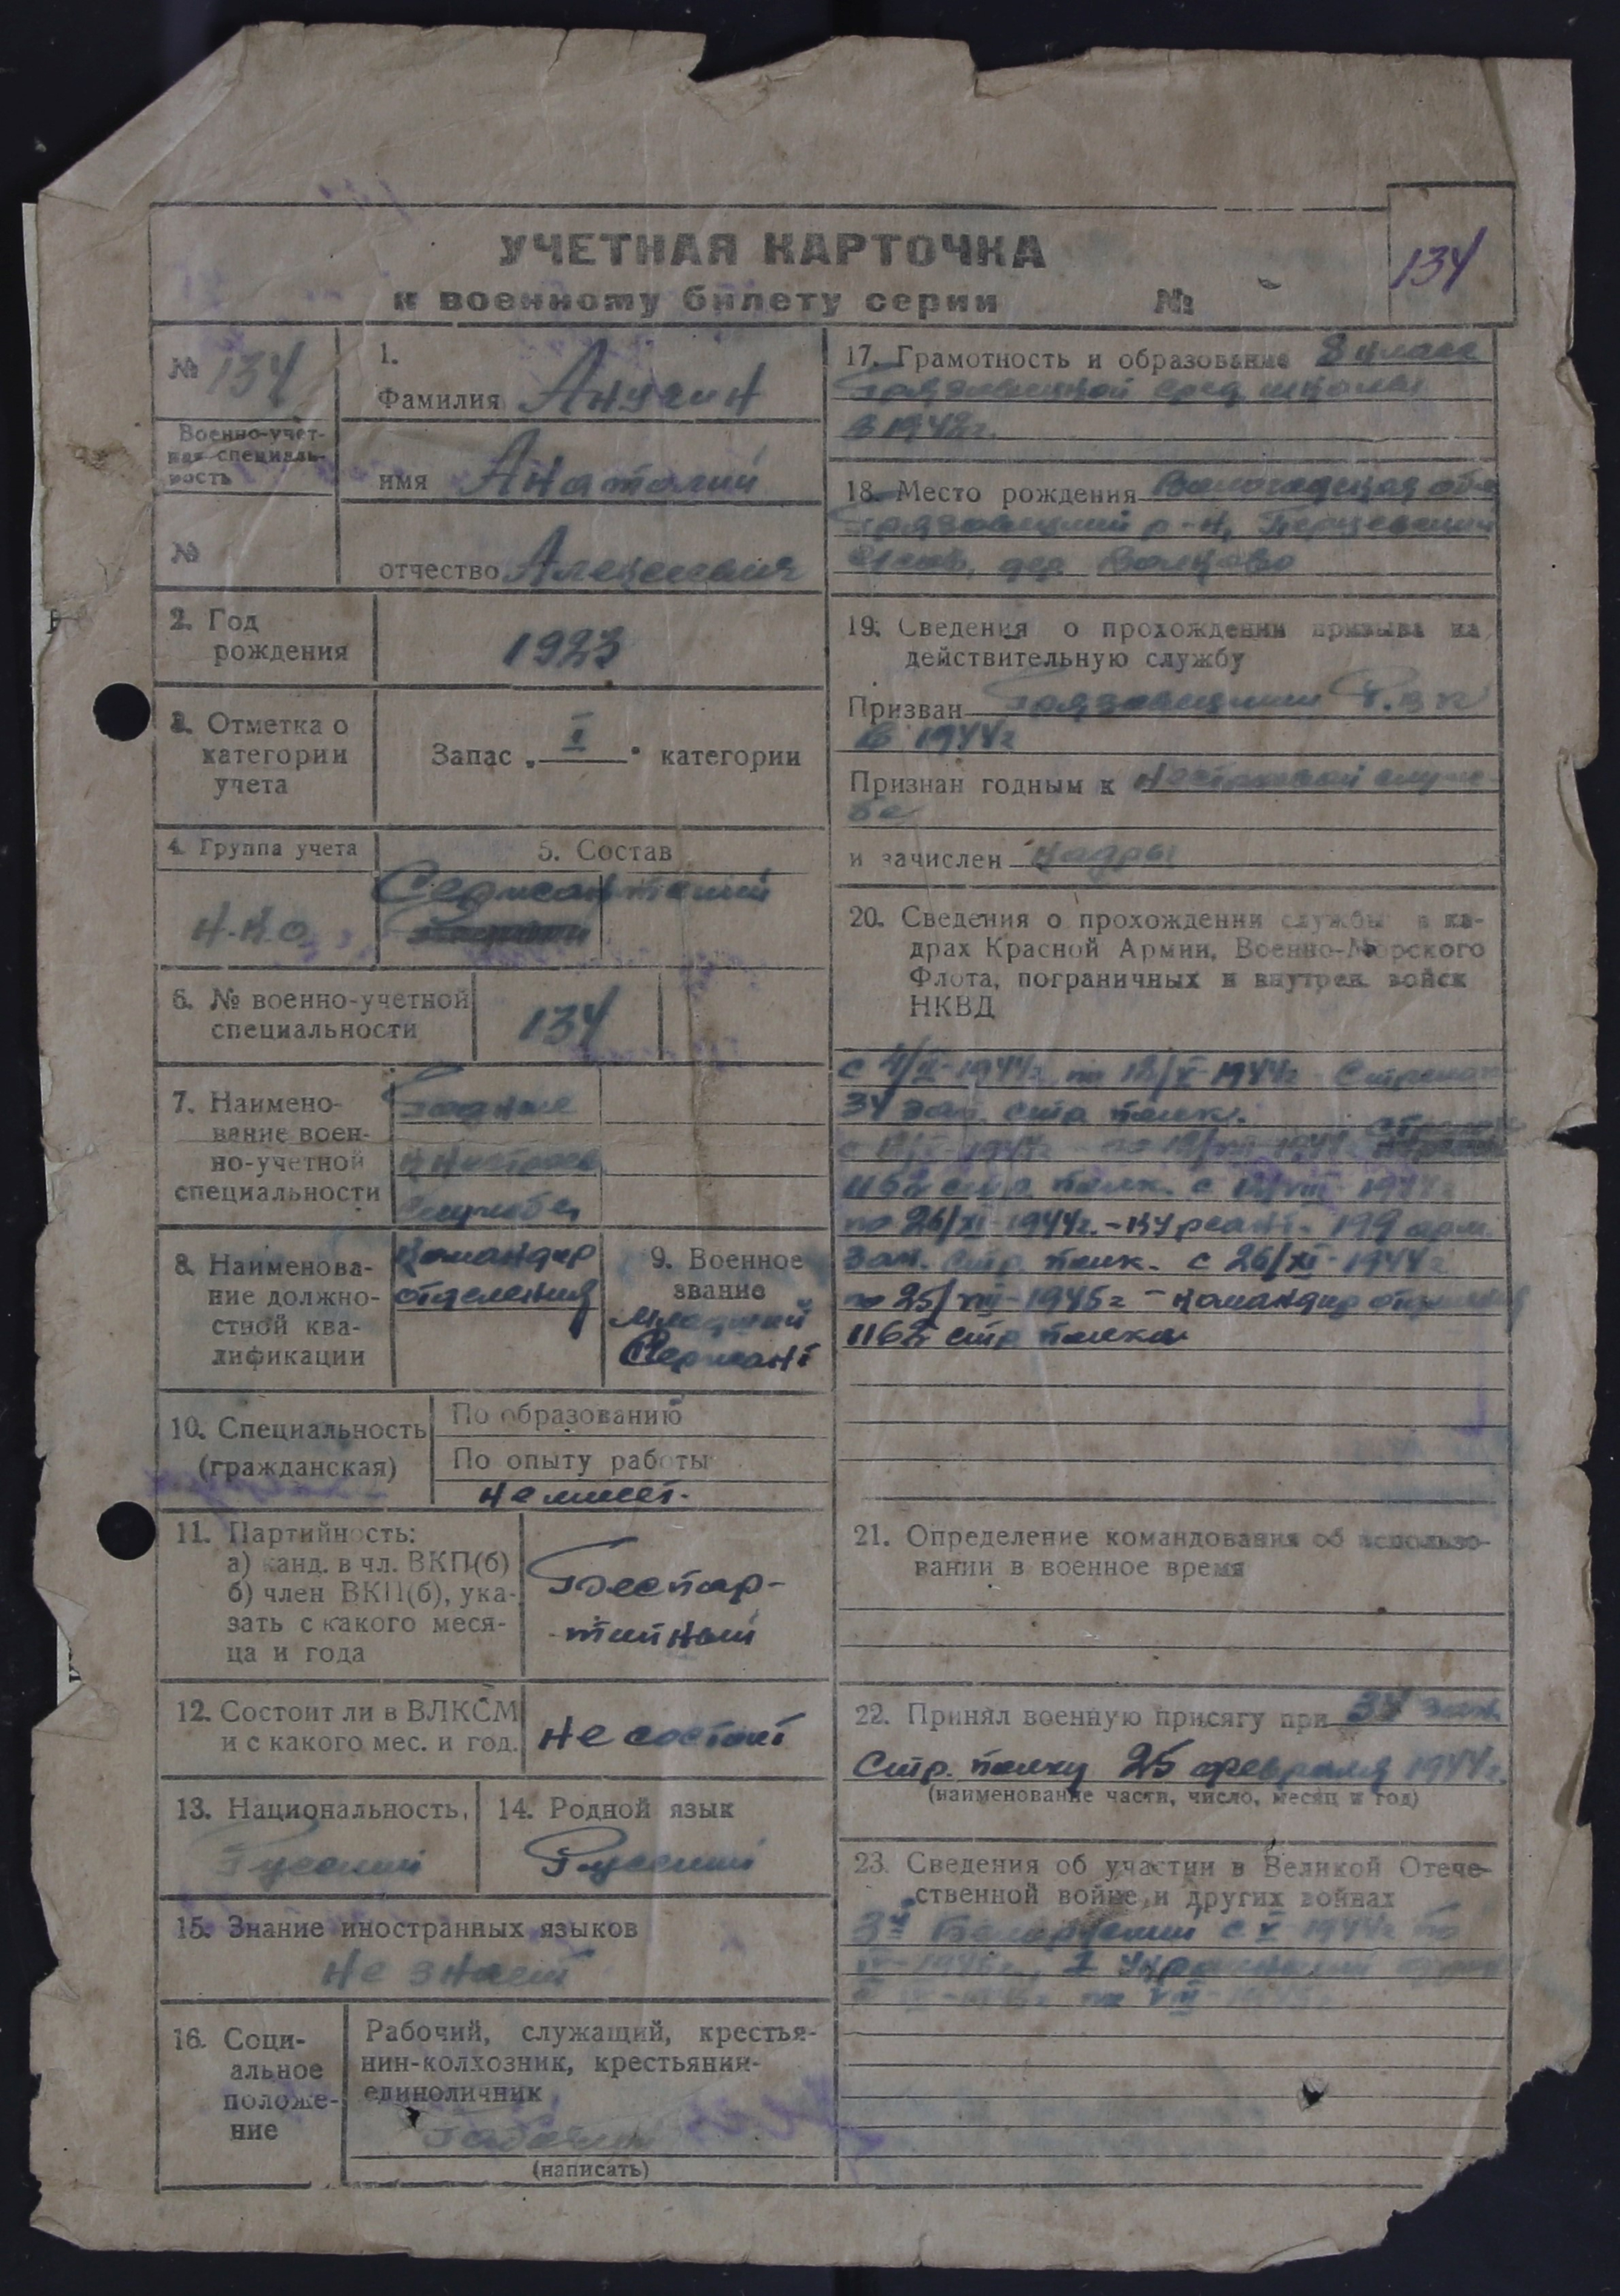 УЧЕТНАЯ КАРТОЧКА
к военному билету серии №
134
№ 134
Военно-учет-
ная специаль-
ность
№
1.
Фамилия Анугин
имя Анатолий
отчество Алексеевич
2. Год
рождения
1923
3. Отметка о
категории
учета
Запас „ I " категории
4. Группа учета
5. Состав
Н.К.О.
Сержантский
6. № военно-учетной
специальности
134
7. Наимено-
вание воен-
но-учетной
специальности
Годные
к нестроев
службе
8. Наименова-
ние должно-
стной ква-
лификации
Командир
отделения
9. Военное
звание
Младший
Сержант
10. Специальность
(гражданская)
По образованию
По опыту работы
Не имеет.
11. Партийность:
а) канд. в чл. ВКП(б)
б) член ВКП(б), ука-
зать с какого меся-
ца и года
Беспар-
-тийный
12. Состоит ли в ВЛКСМ
и с какого мес. и год.
Не состоит
13. Национальность,
Русский
14. Родной язык
Русский
15. Знание иностранных языков
Не знает
16. Соци-
альное
положе-
ние
Рабочий, служащий, крестья-
нин-колхозник, крестьянин-
единоличник
Рабочий
(написать)
17. Грамотность и образование 8 класс
Грязовецкой сред. школы
в 1942г.
18. Место рождения Вологодская обл
Грязовецкий р-н, Перцевский
с/сов, дер.
19. Сведения о прохождении призыва на
действительную службу
Призван Грязовецким Р.В.К
в 1944г
Признан годным к нестроевой служ-
бе
и зачислен кадры
20. Сведения о прохождении службы в ка-
драх Красной Армии, Военно-Морского
Флота, пограничных и внутрен. войск
НКВД
с 4/II-1944г. по 12/V-1944г Стрелок
34 зап. стр. полк.
с 12/V-1944г - по 12/VIII-1944г. стрелок
1162 стр. полк. с 12/VIII-1944г
по 26/XI-1944г. - Курсант - 199 арм.
зап. стр. полк. с 26/XI-1944г
по 25/VIII-1945г - командир отделения
1162 стр. полка
21. Определение командования об использо-
вании в военное время
22. Принял военную присягу при 34 зап.
Стр. полку 25 февраля 1944г.
(наименование части, число, месяц и год)
23. Сведения об участии в Великой Отече-
ственной войне и других войнах
3й Белорусский с V-1944г. по
IV-1945г., I Украинский
по VIII